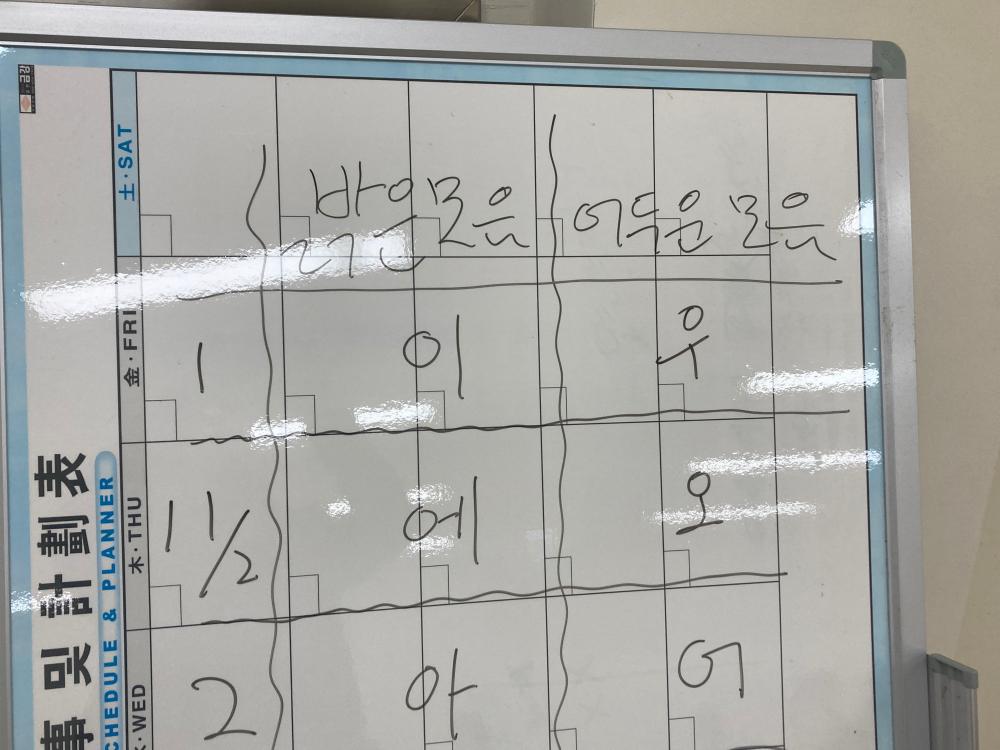 밝은모음 어두운 모음
1 이 우
1 1/2 에 오
2 아 어
事 및 計劃表
CHEDULE & PLANNER
·WED
木·THU
金·FRI
土·SAT